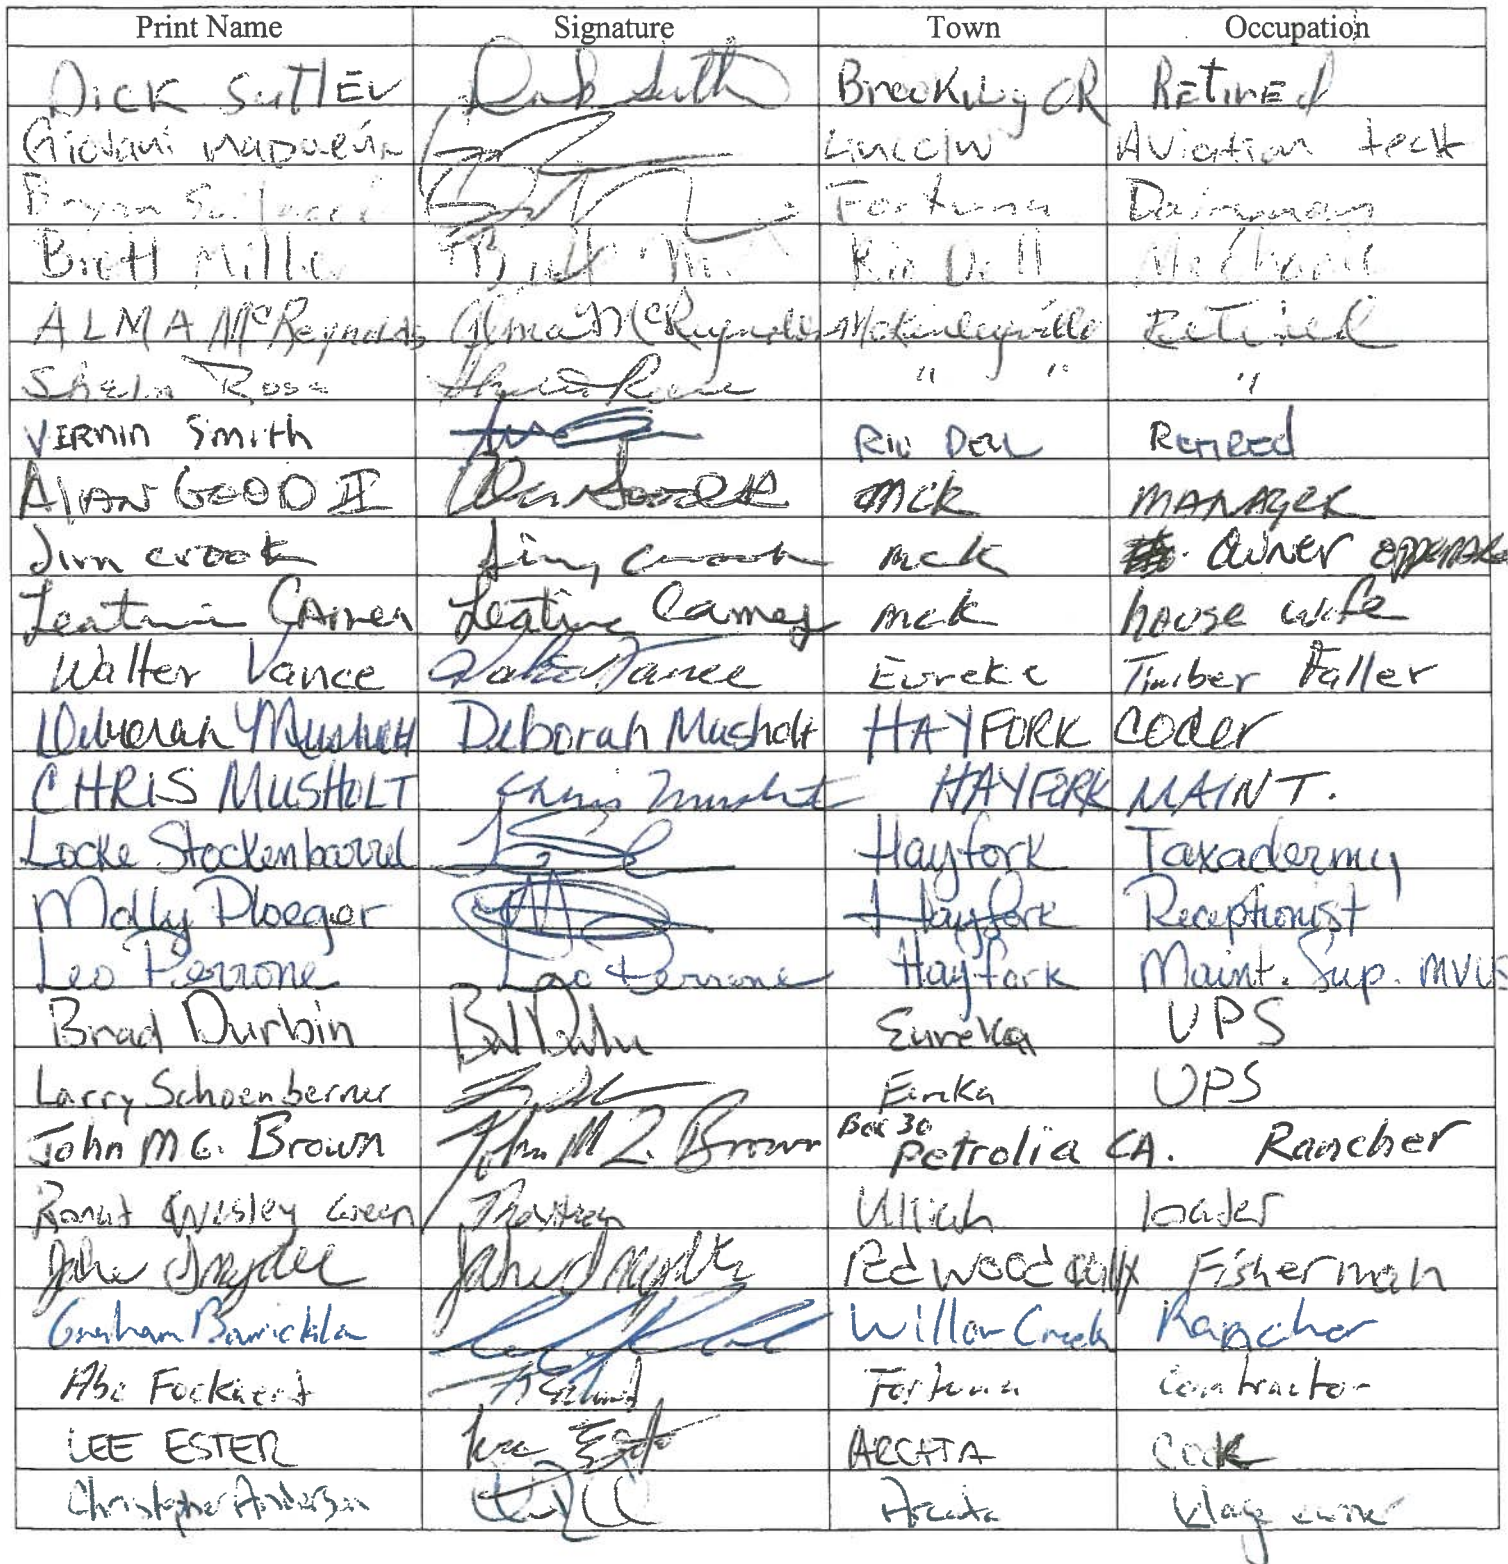 Print Name Signature Town Occupation
DICK SUTLEV Brooking OR RETIRED
Giovani Lincoln Aviation teck
Bryan Fortuna Dairyman
Brett Mille Brett Rio Dell Mechanic
ALMA McReynolds Alma McReynolds Mckinleyville Retired
Shela Rose " " "
VERNIN Smith RIO DELL RETIRED
AlAN GOOD II Alan Good II mck MANAGER
Jim crook Jim Crook mck Owner
Carney mck house wife
Walter Vance Walter Vance Eureka Timber Faller
Deborah Musholt Deborah Musholt HAYFORK Coder
CHRIS MUSHOLT Chris Musholt HAYFORK MAINT.
Locke Stockenbarrel Hayfork Taxadermy
Molly Ploeger Hayfork Receptionist
Leo Perrone Leo Perrone Hayfork Maint. Sup.
Brad Durbin Eureka UPS
Larry Schoenberner Eureka UPS
John M G. Brown John M G. Brown Box 30 Petrolia CA. Rancher
Wesley Green Ukiah loader
John Snyder John Snyder Redwood Fisherman
Graham Willow Creek Rancher
Abe Fortuna Contractor
LEE ESTER Lee Ester ARCATA Cook
Christopher Anderson Arcata